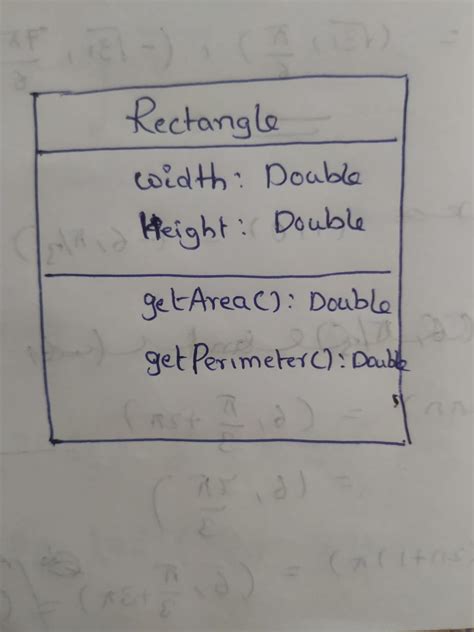 Rectangle
width: Double
Height: Double
getArea(): Double
getPerimeter(): Double